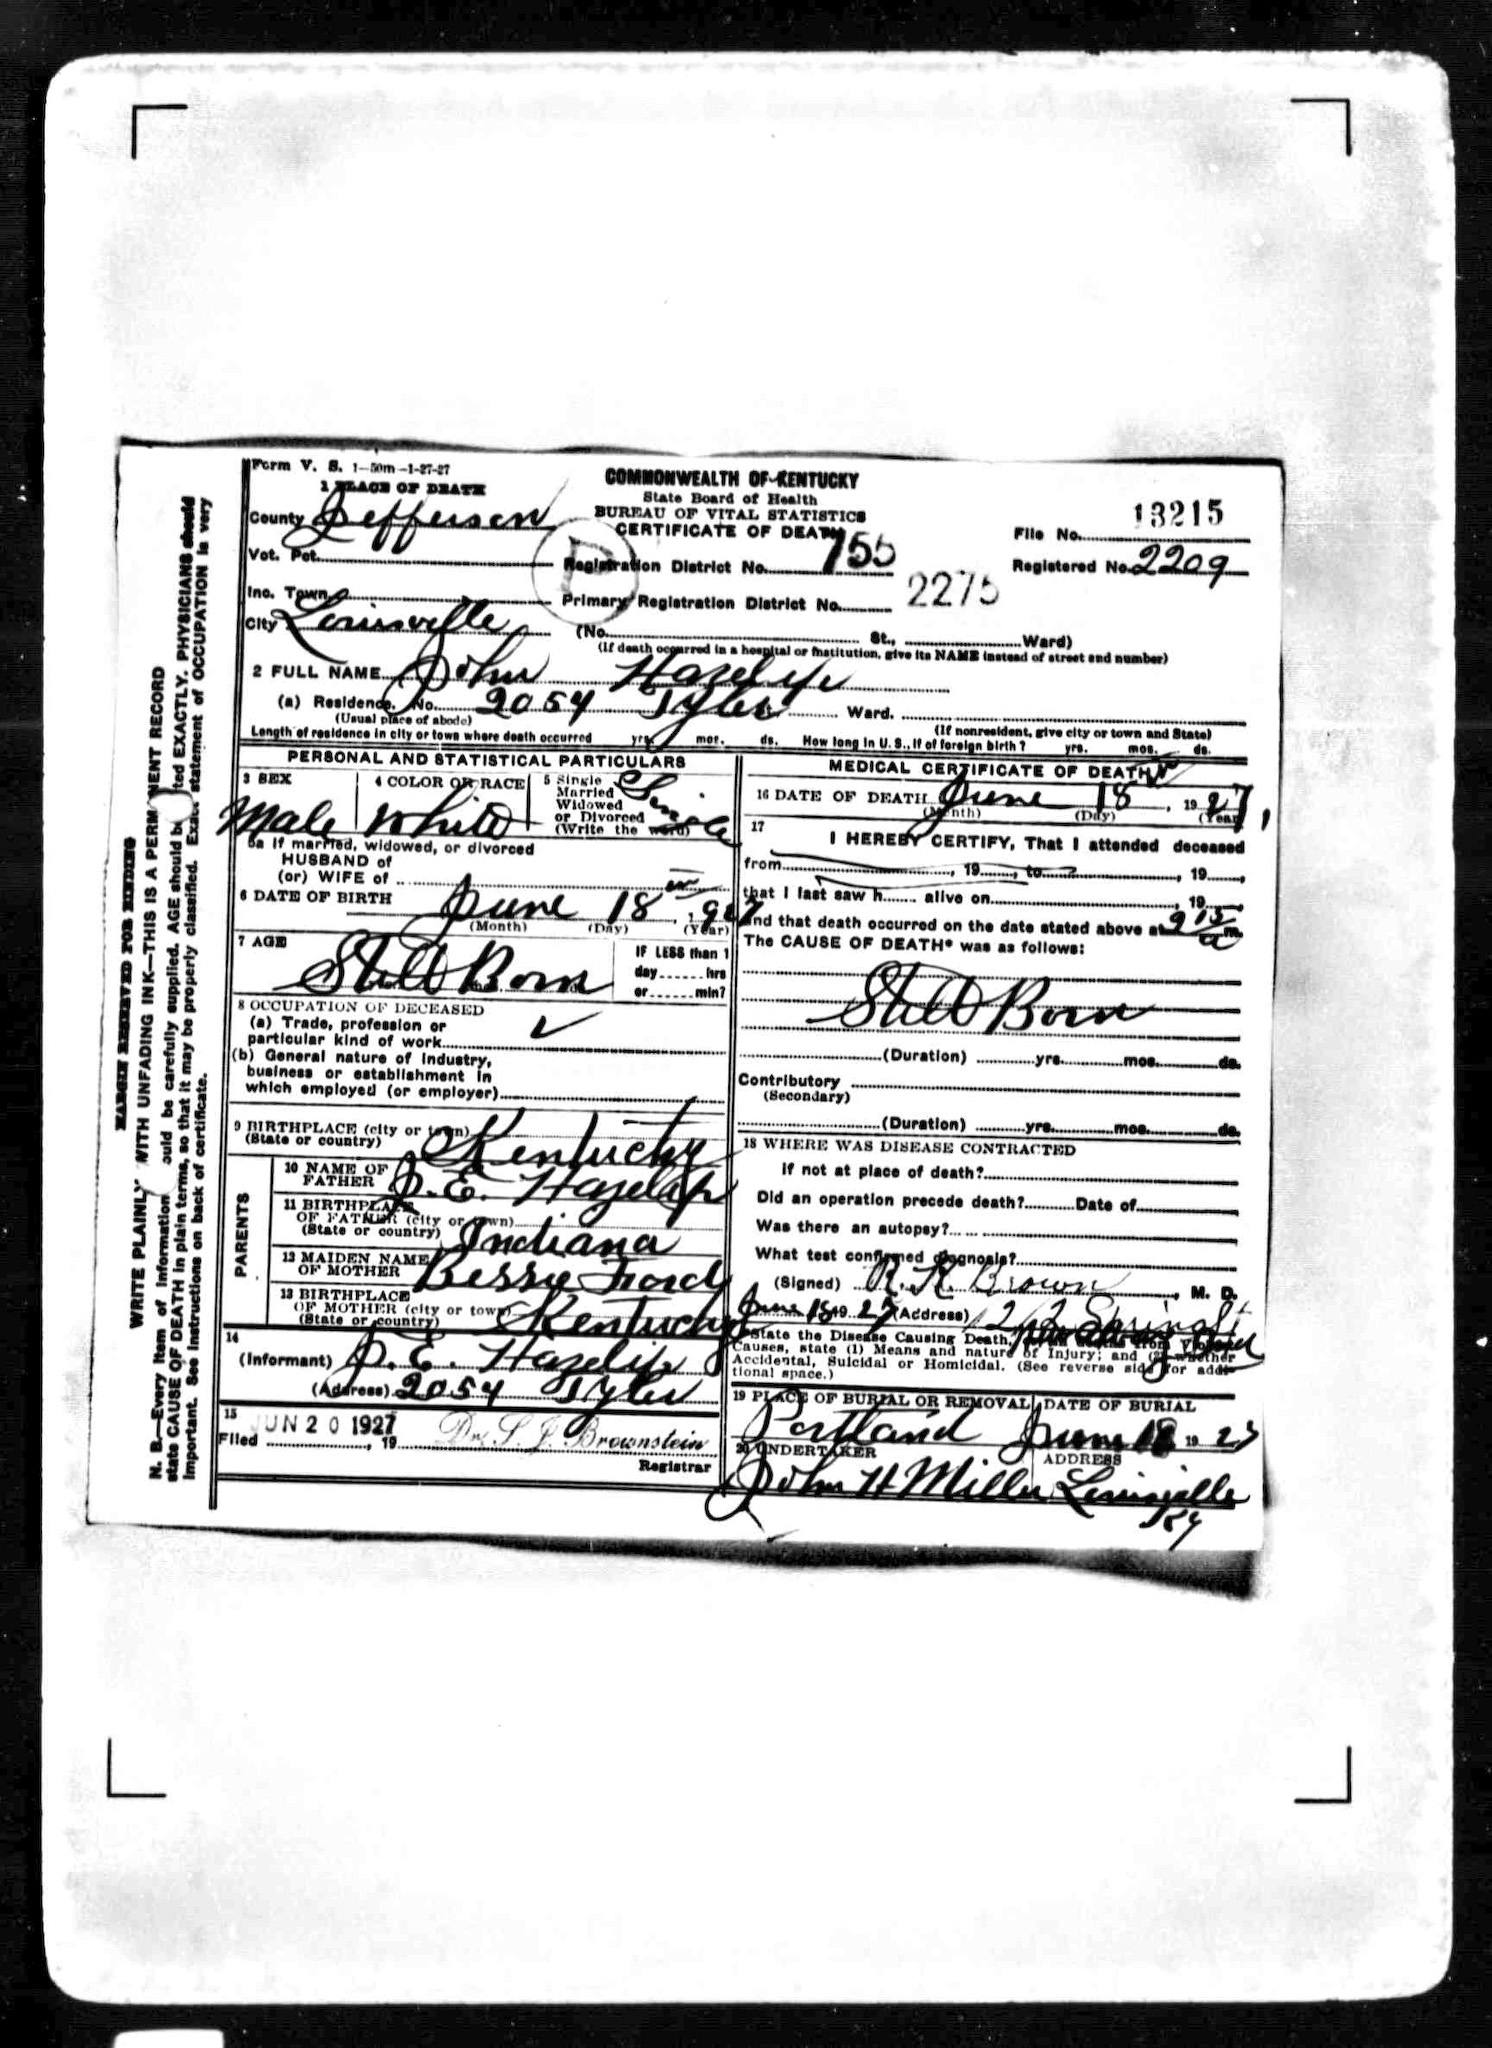 Form V. S. 1—50m—1-27-27
COMMONWEALTH OF KENTUCKY
State Board of Health
BUREAU OF VITAL STATISTICS
CERTIFICATE OF DEATH
1 PLACE OF DEATH
County Jefferson
Vot. Pct.
Inc. Town
City Louisville
File No. 13215
Registered No. 2209
Registration District No. 755
Primary Registration District No. 2275
(No. St., Ward)
(If death occurred in a hospital or institution, give its NAME instead of street and number)
2 FULL NAME John Hazelip
(a) Residence. No. 2054 Tyler St. Ward.
(Usual place of abode) (If nonresident, give city or town and State)
Length of residence in city or town where death occurred yrs. mos. ds. How long in U. S., if of foreign birth? yrs. mos. ds.
PERSONAL AND STATISTICAL PARTICULARS
3 SEX Male
4 COLOR OR RACE White
5 Single
Married
Widowed
or Divorced
(Write the word) Single
5a If married, widowed, or divorced
HUSBAND of
(or) WIFE of
6 DATE OF BIRTH June 18 1927
(Month) (Day) (Year)
7 AGE Still Born
IF LESS than 1
day hrs
or min?
8 OCCUPATION OF DECEASED
(a) Trade, profession or
particular kind of work ✓
(b) General nature of Industry,
business or establishment in
which employed (or employer)
9 BIRTHPLACE (city or town)
(State or country) Kentucky
PARENTS
10 NAME OF
FATHER J. E. Hazelip
11 BIRTHPLACE
OF FATHER (city or town)
(State or country) Indiana
12 MAIDEN NAME
OF MOTHER Bessie Ford
13 BIRTHPLACE
OF MOTHER (city or town)
(State or country) Kentucky
14
(Informant) J. E. Hazelip
(Address) 2054 Tyler
15
Filed JUN 20 1927, 19 Dr. S. J. Brownstein
Registrar
MEDICAL CERTIFICATE OF DEATH
16 DATE OF DEATH June 18, 1927
(Month) (Day) (Year)
17 I HEREBY CERTIFY, That I attended deceased
from , 19 , to , 19 ,
that I last saw h alive on , 19 ,
and that death occurred on the date stated above at 9 15 a m.
The CAUSE OF DEATH* was as follows:
Still Born
(Duration) yrs. mos. ds.
Contributory
(Secondary)
(Duration) yrs. mos. ds.
18 WHERE WAS DISEASE CONTRACTED
if not at place of death?
Did an operation precede death? Date of
Was there an autopsy?
What test confirmed diagnosis?
(Signed) R. R. Brown, M. D.
June 18 19 27 (Address)
*State the Disease Causing Death, or in deaths from Violent
Causes, state (1) Means and nature of Injury; and (2) whether
Accidental, Suicidal or Homicidal. (See reverse side for addi-
tional space.)
19 PLACE OF BURIAL OR REMOVAL Portland
DATE OF BURIAL June 18 19 27
20 UNDERTAKER John H Miller
ADDRESS Louisville
Ky
MARGIN RESERVED FOR BINDING
WRITE PLAINLY WITH UNFADING INK—THIS IS A PERMANENT RECORD
N. B.—Every item of information should be carefully supplied. AGE should be stated EXACTLY. PHYSICIANS should
state CAUSE OF DEATH in plain terms, so that it may be properly classified. Exact statement of OCCUPATION is very
important. See instructions on back of certificate.